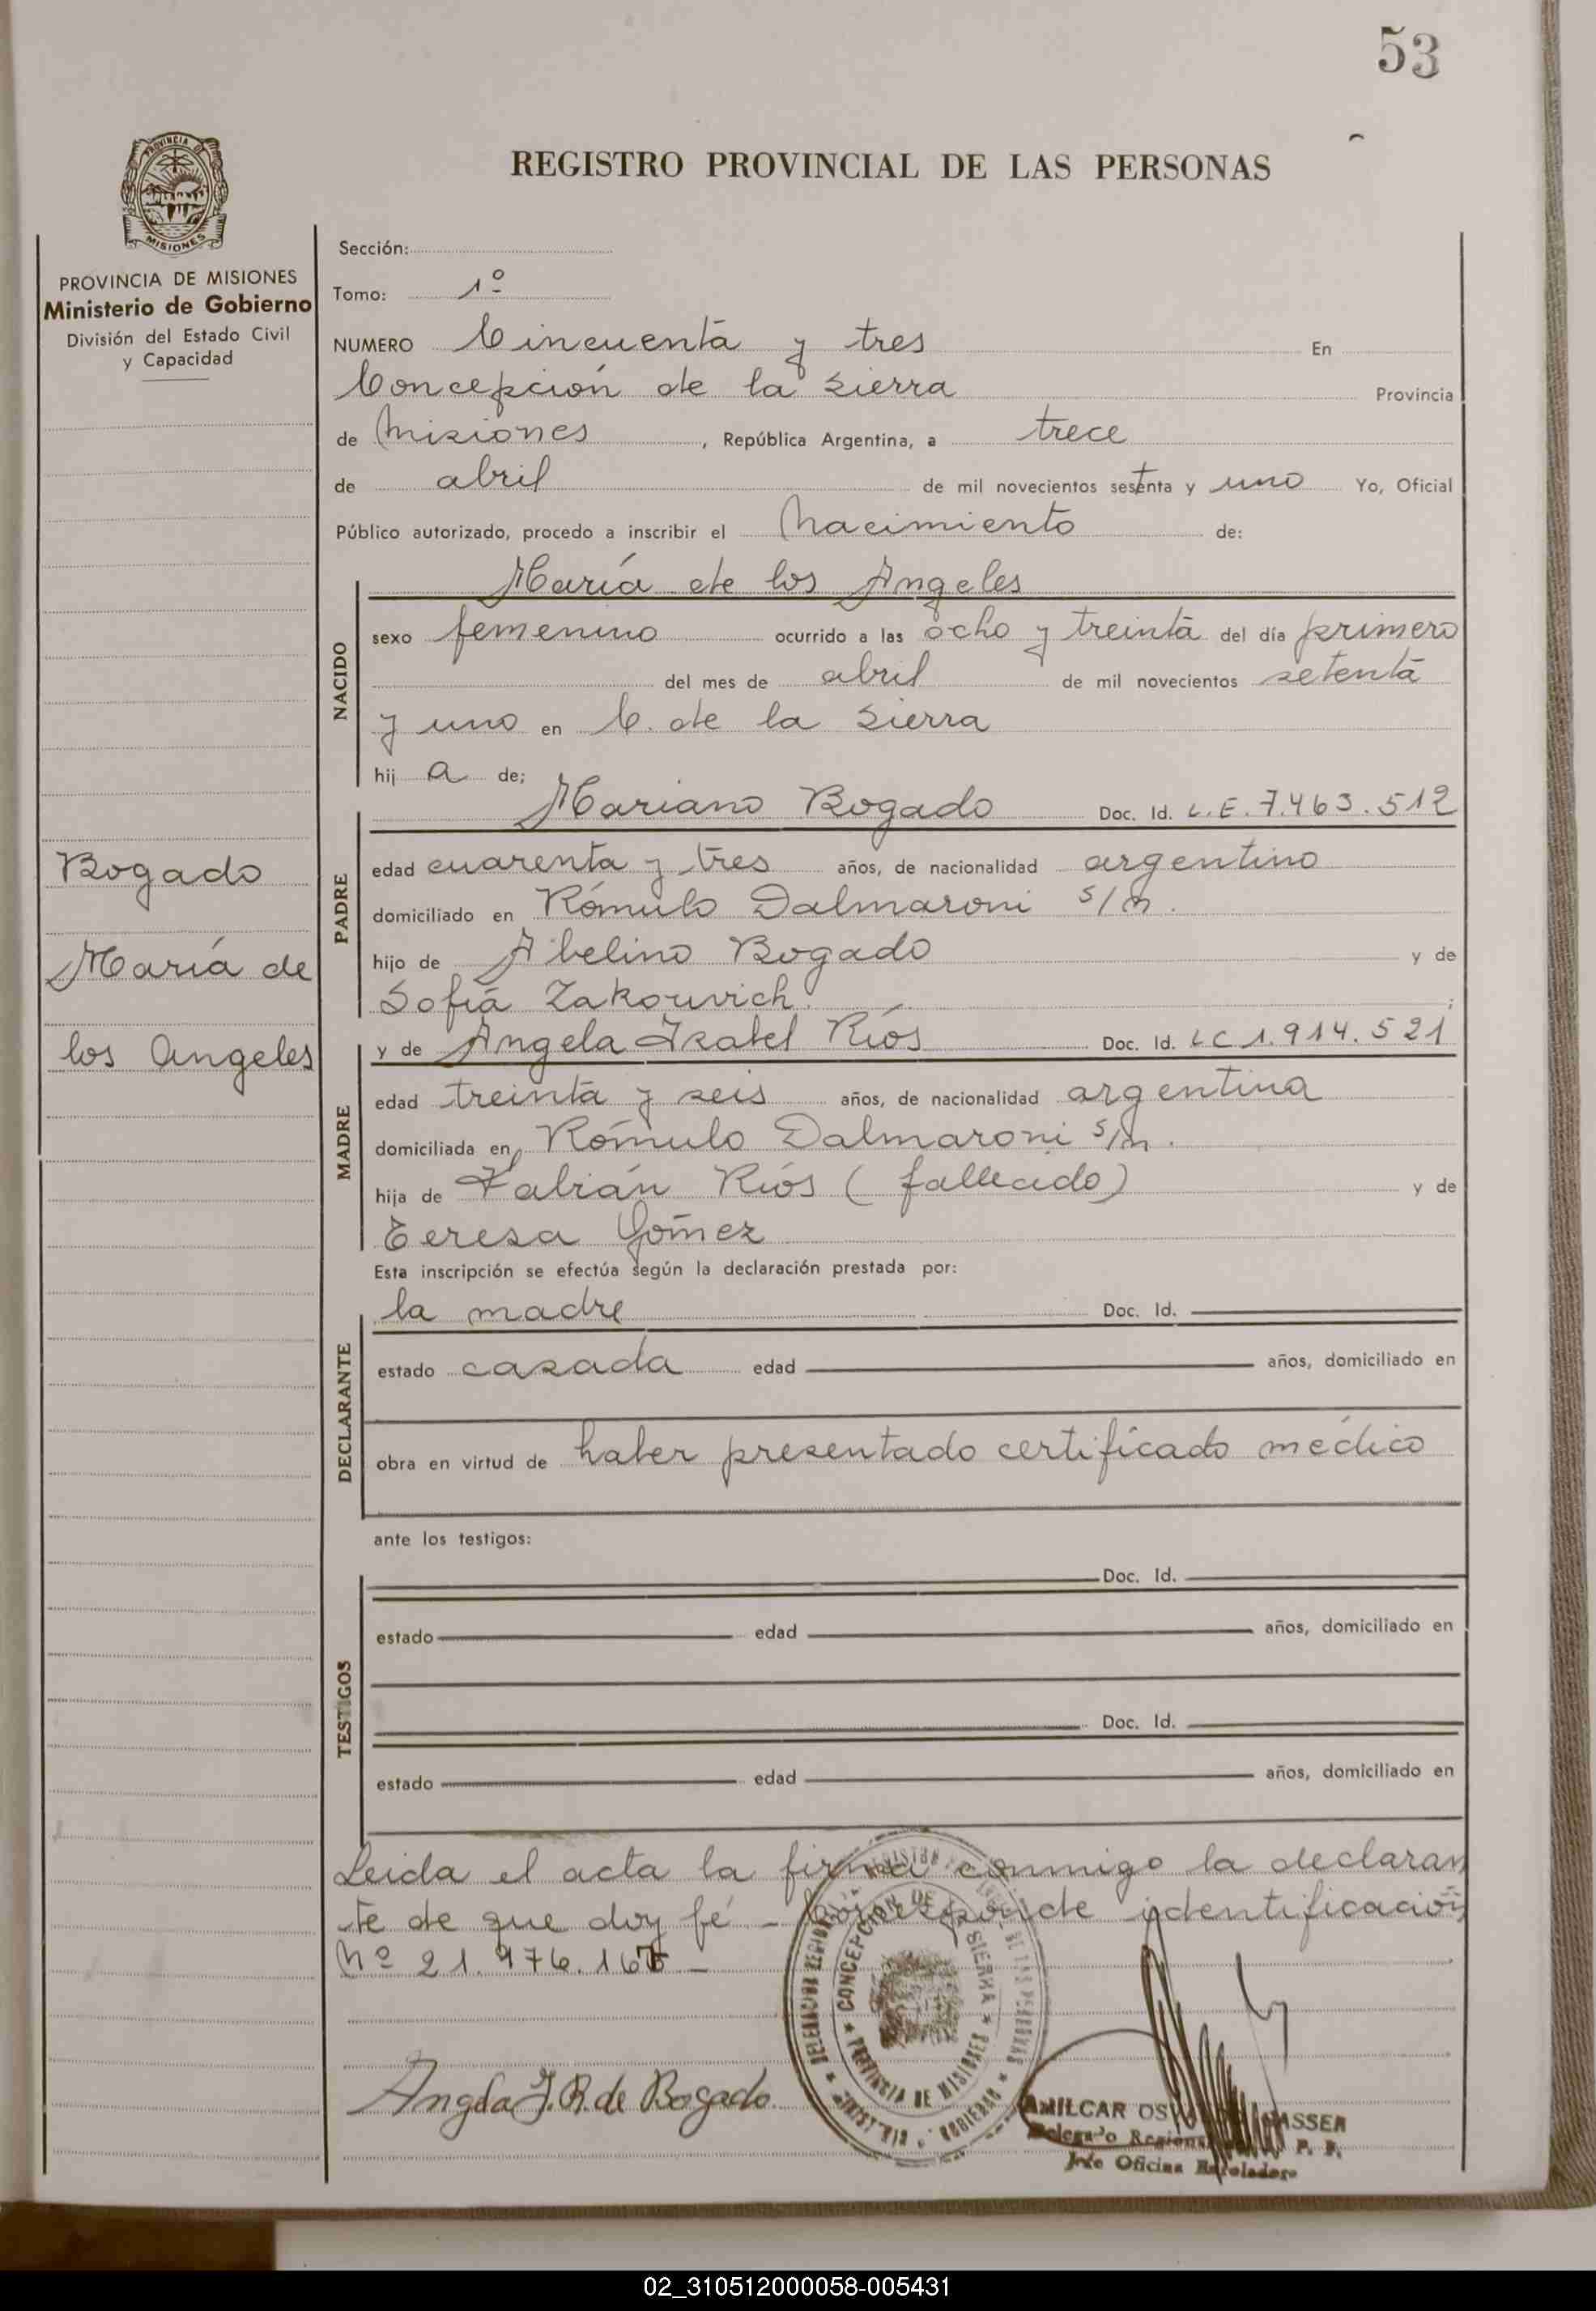 53
REGISTRO PROVINCIAL DE LAS PERSONAS
PROVINCIA DE
MISIONES
PROVINCIA DE MISIONES
Ministerio de Gobierno
División del Estado Civil
y Capacidad
Bogado
María de
los Angeles
Sección:
Tomo: 1º
NUMERO Cincuenta y tres En
Concepción de la Sierra Provincia
de Misiones, República Argentina, a trece
de abril de mil novecientos setenta y uno Yo, Oficial
Público autorizado, procedo a inscribir el Nacimiento de:
NACIDO
María de los Angeles
sexo femenino ocurrido a las ocho y treinta del día primero
del mes de abril de mil novecientos setenta
y uno en C. de la Sierra
hij a de;
PADRE
Mariano Bogado Doc. Id. L.E. 7.463.512
edad cuarenta y tres años, de nacionalidad argentino
domiciliado en Rómulo Dalmaroni s/n.
hijo de Abelino Bogado y de
Sofía Zakouvich. ;
MADRE
y de Angela Isabel Ríos Doc. Id. LC 1.914.521
edad treinta y seis años, de nacionalidad argentina
domiciliada en Rómulo Dalmaroni s/n.
hija de Fabián Ríos (fallecido) y de
Teresa Gómez
Esta inscripción se efectúa según la declaración prestada por:
DECLARANTE
la madre Doc. Id.
estado casada edad años, domiciliado en
obra en virtud de haber presentado certificado médico
ante los testigos:
TESTIGOS
Doc. Id.
estado edad años, domiciliado en
Doc. Id.
estado edad años, domiciliado en
Leida el acta la firma conmigo la declaran
te de que doy fé - Corresponde identificación
Nº 21.976.165 -
CONCEPCION DE LA SIERRA * PROVINCIA DE MISIONES *
Angela I. R. de Bogado
AMILCAR OSV ASSER
Delegado Regional P. P.
Jefe Oficina Enroladora
02_310512000058-005431